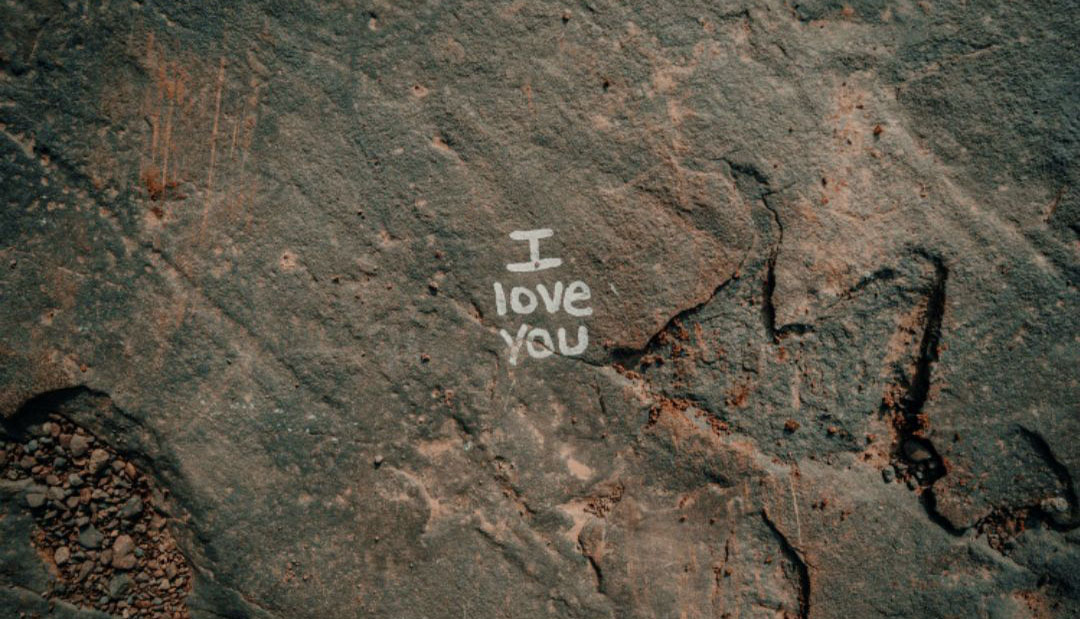 I
love
you